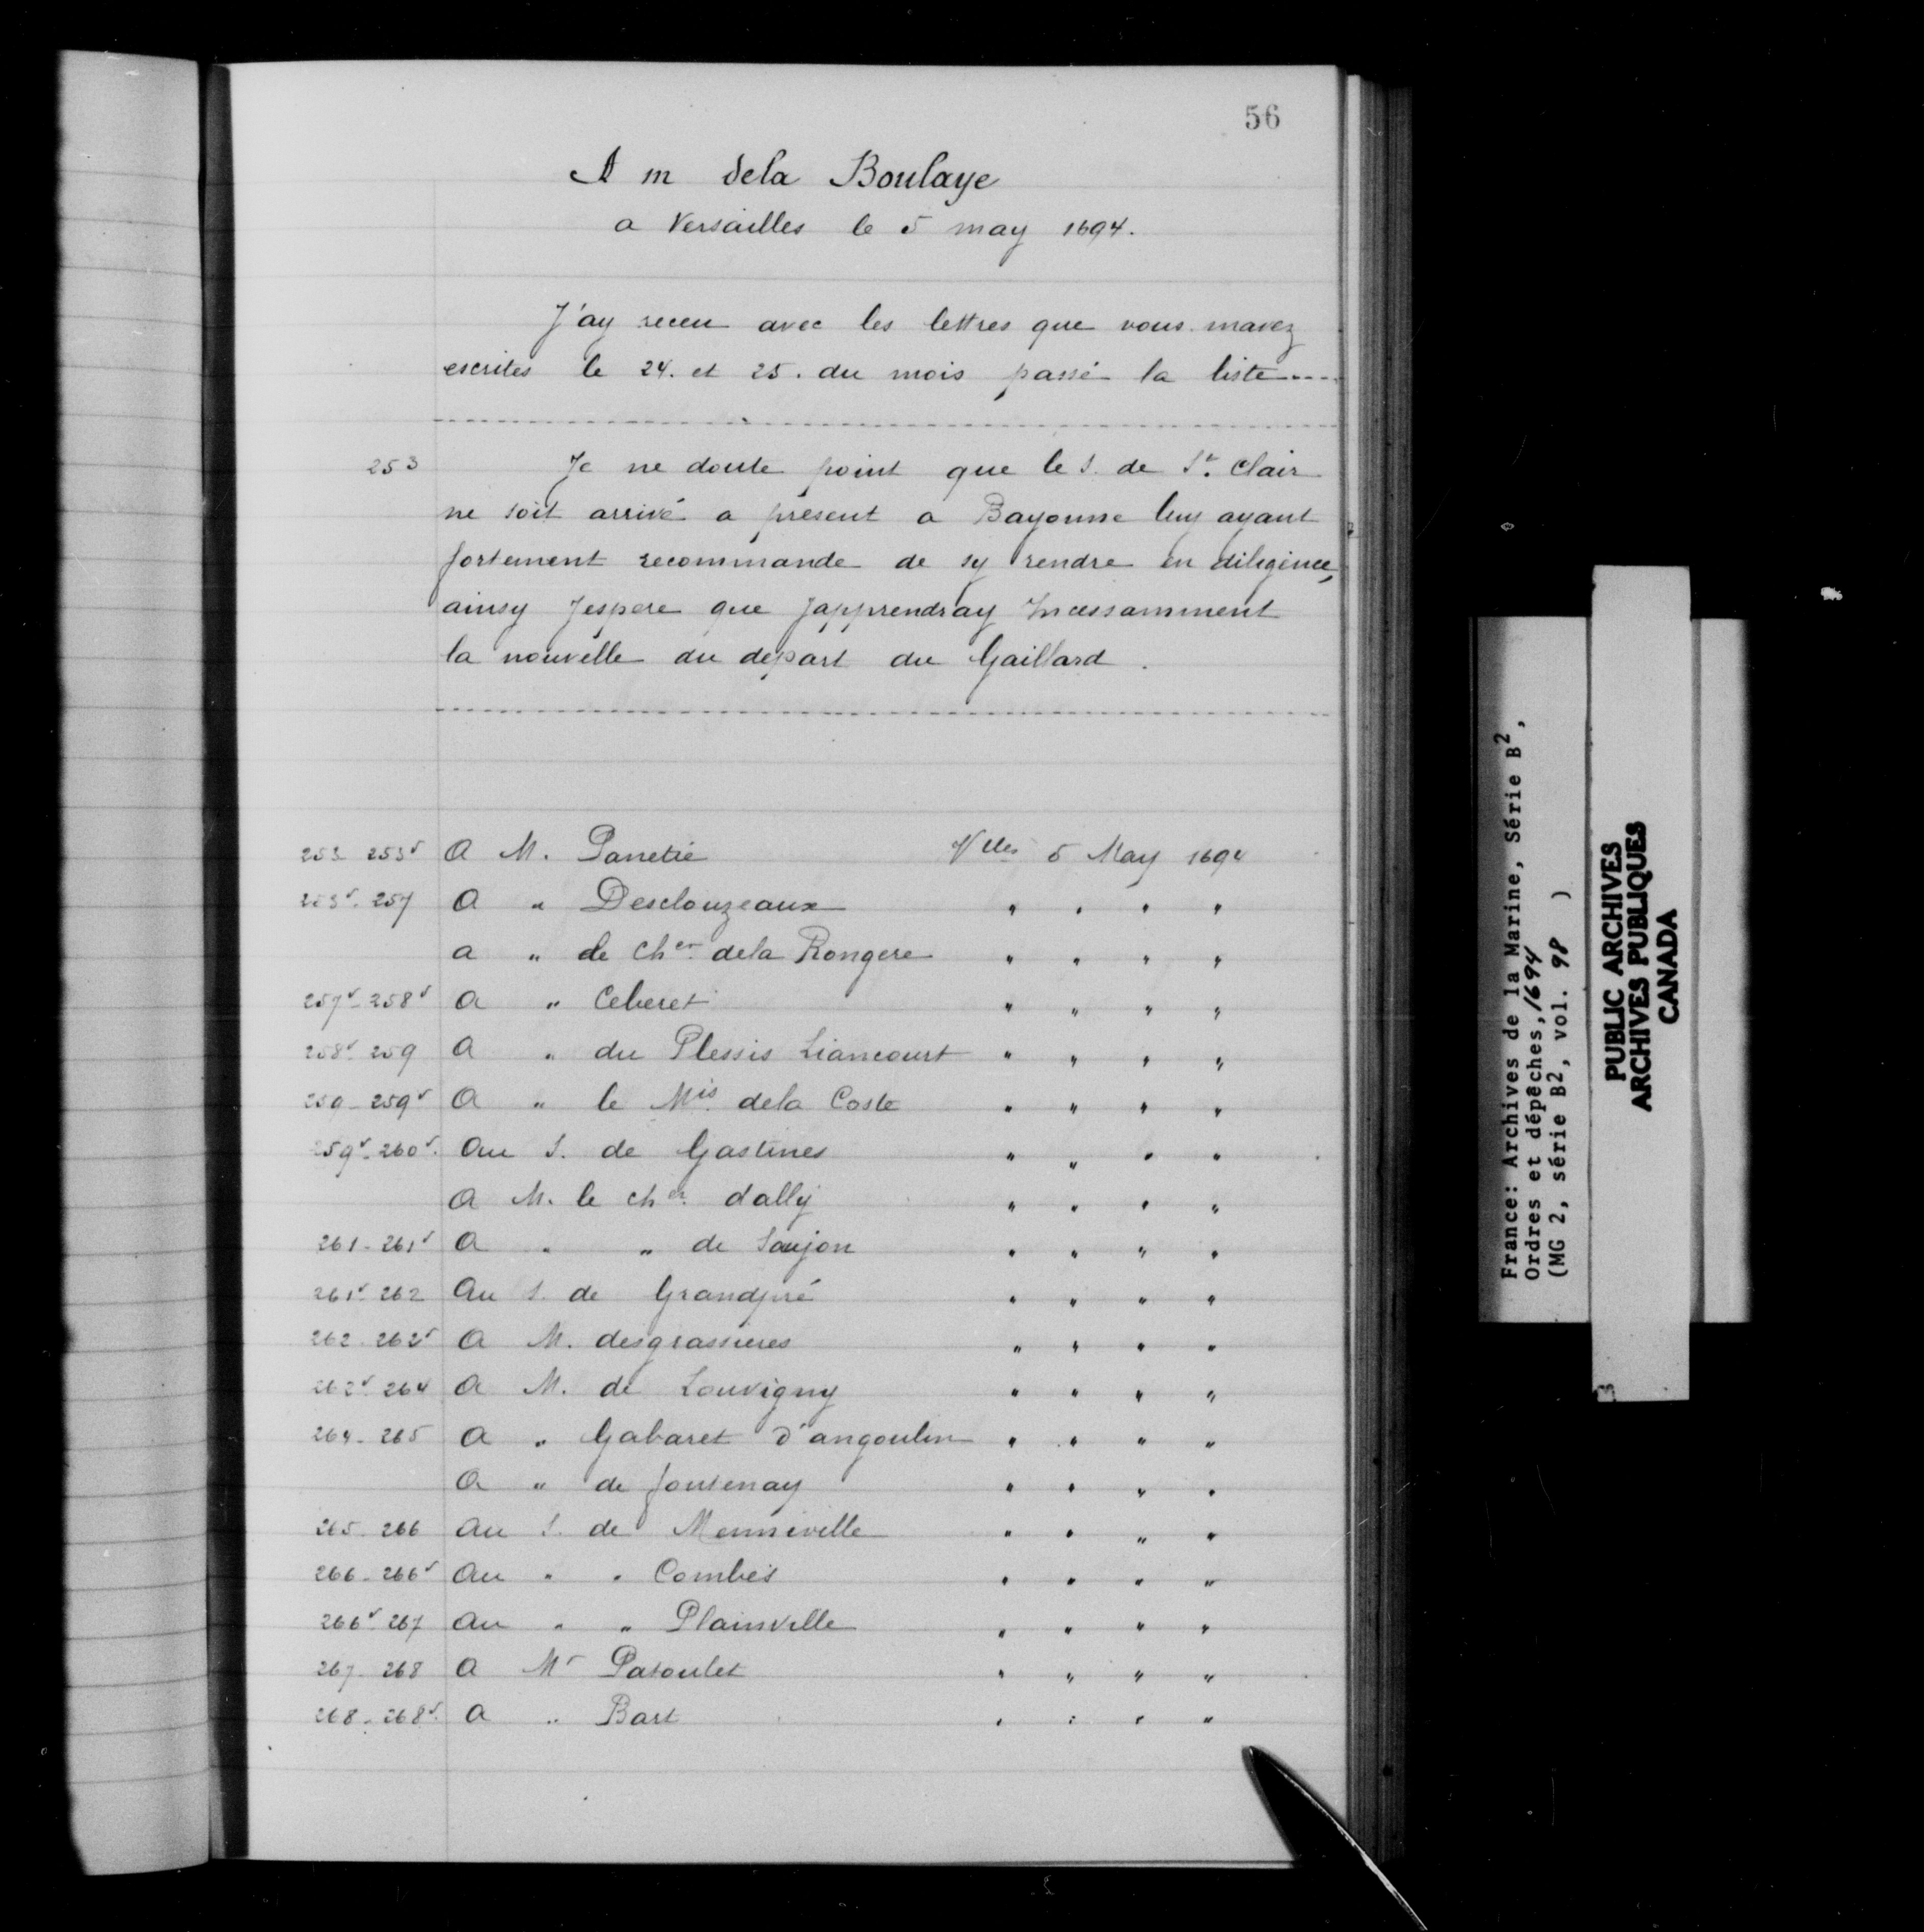 56
A m dela Boulaye
a Versailles le 5 may 1694.
J'ay receu avec les lettres que vous mavez
escrites le 24. et 25. du mois passé la liste....
253 Je ne doute point que le S. de St. Clair
ne soit arrivé a présent a Bayonne luy ayant
fortement recommande de sy rendre en diligence,
ainsy Jespere que Japprendray Incessamment
la nouvelle du départ du Gaillard.
253 253v A M. Panetié Vlles 5 May 1694
253v. 257 A " Desclouzeaux " " " "
a " le Cher dela Rongere " " " "
257v-258v a " Ceberet " " " "
258v. 259 A " du Plessis Liancourt " " " "
259-259v A " le Mis dela Coste " " " "
259v-260v. Au S. de Gastines " " " "
A M. le cher dally " " " "
261-261v A " " de Saujon " " " "
261v. 262 Au S. de Grandpré " " " "
262-262v A M. desgrassieres " " " "
262v. 264 A M. de Louvigny " " " "
264-265 A " Gabaret d'angoulin " " " "
A " de fontenay " " " "
265-266 Au S. de Menneville " " " "
266-266v Au " " Combes " " " "
266v. 267 Au " " Plainville " " " "
267-268 A Mr Patoulet " " " "
268-268v. A " Bart " " " "
France: Archives de la Marine, Série B2,
Ordres et dépêches, 1694
(MG 2, série B2, vol. 98 )
PUBLIC ARCHIVES
ARCHIVES PUBLIQUES
CANADA